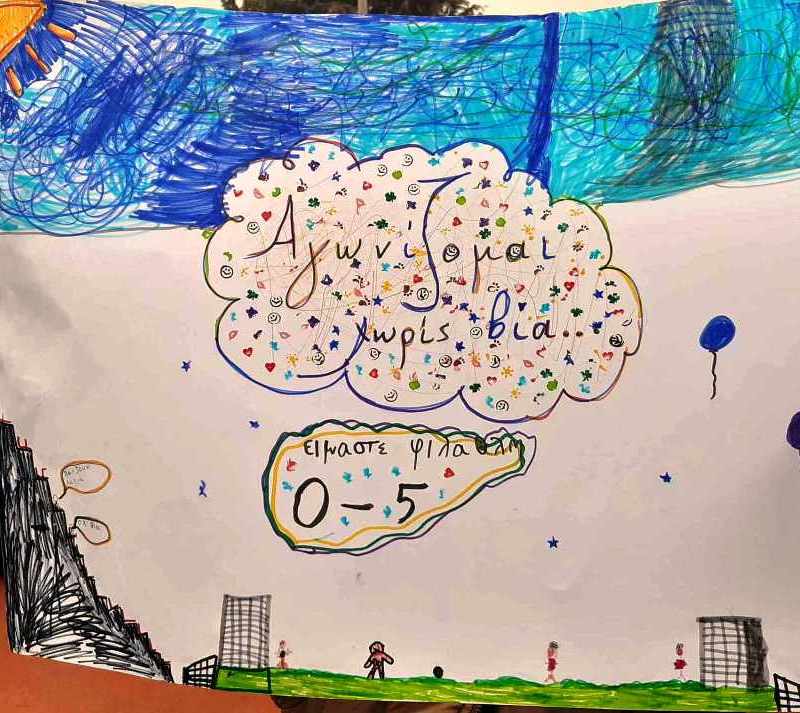 Αγωνίζομαι
χωρίς βια..
ειμαστε φιλαθλη
0-5